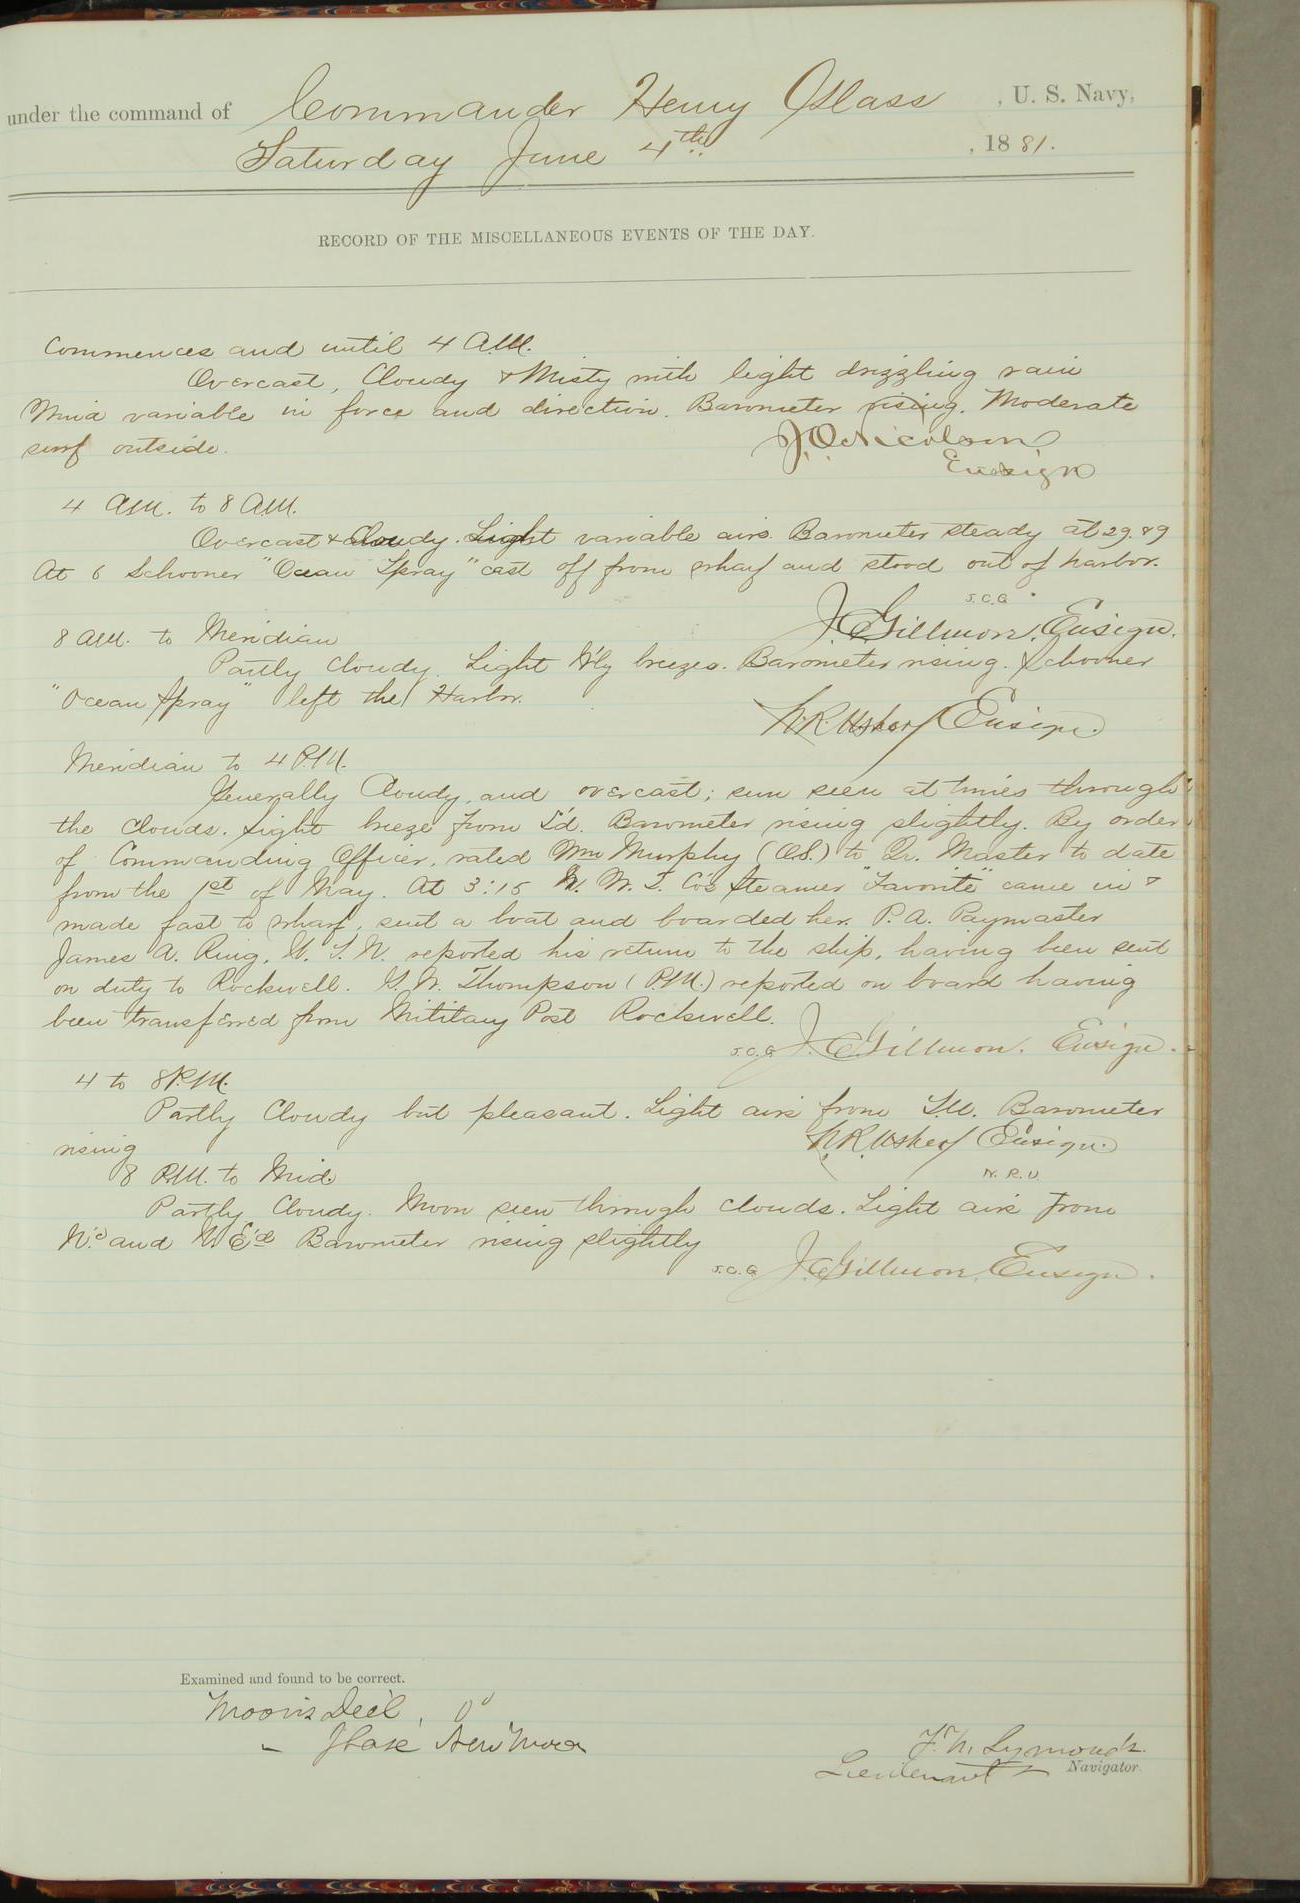 under the command of Commander Henry Glass, U. S. Navy,
Saturday June 4th, 1881.
RECORD OF THE MISCELLANEOUS EVENTS OF THE DAY.
Commences and until 4 A.M.
Overcast, Cloudy & Misty with light drizzling rain
Wind variable in force and direction. Barometer rising. Moderate
surf outside.
J.O. Nicolson
Ensign
4 A.M. to 8 A.M.
Overcast & Cloudy. Light variable airs. Barometer steady at 29.89
At 6 Schooner "Ocean Spray" cast off from wharf and stood out of harbor.
J.C.G.
J.C. Gillmore, Ensign.
8 A.M. to Meridian
Partly Cloudy. Light N'ly breezes. Barometer rising. Schooner
"Ocean Spray" left the Harbor.
N.R. Usher Ensign.
Meridian to 4 P.M.
Generally Cloudy, and overcast; sun seen at times through
the clouds. Light breeze from S'd. Barometer rising slightly. By order
of Commanding Officer, rated Wm Murphy (O.S.) to Qr. Master to date
from the 1st of May. At 3:15 N. W. T. Co's Steamer "Favorite" came in &
made fast to wharf, sent a boat and boarded her. P.A. Paymaster
James A. Ring, U. S. N. reported his return to the ship, having been sent
on duty to Rockwell. Thompson (P.M.) reported on board having
been transferred from Military Post Rockwell.
J.C.G. J.C. Gillmore. Ensign.
4 to 8 P.M.
Partly Cloudy but pleasant. Light airs from Barometer
rising
N.R. Usher Ensign.
N. R. U.
8 P.M. to Mid.
Partly Cloudy. Moon seen through clouds. Light airs from
N'd and N. E'd Barometer rising slightly
J.C.G. J.C. Gillmore, Ensign.
Examined and found to be correct.
Moon's Decl, 0°
" Phase New Moon
F. M. Symonds.
Lieutenant & Navigator.